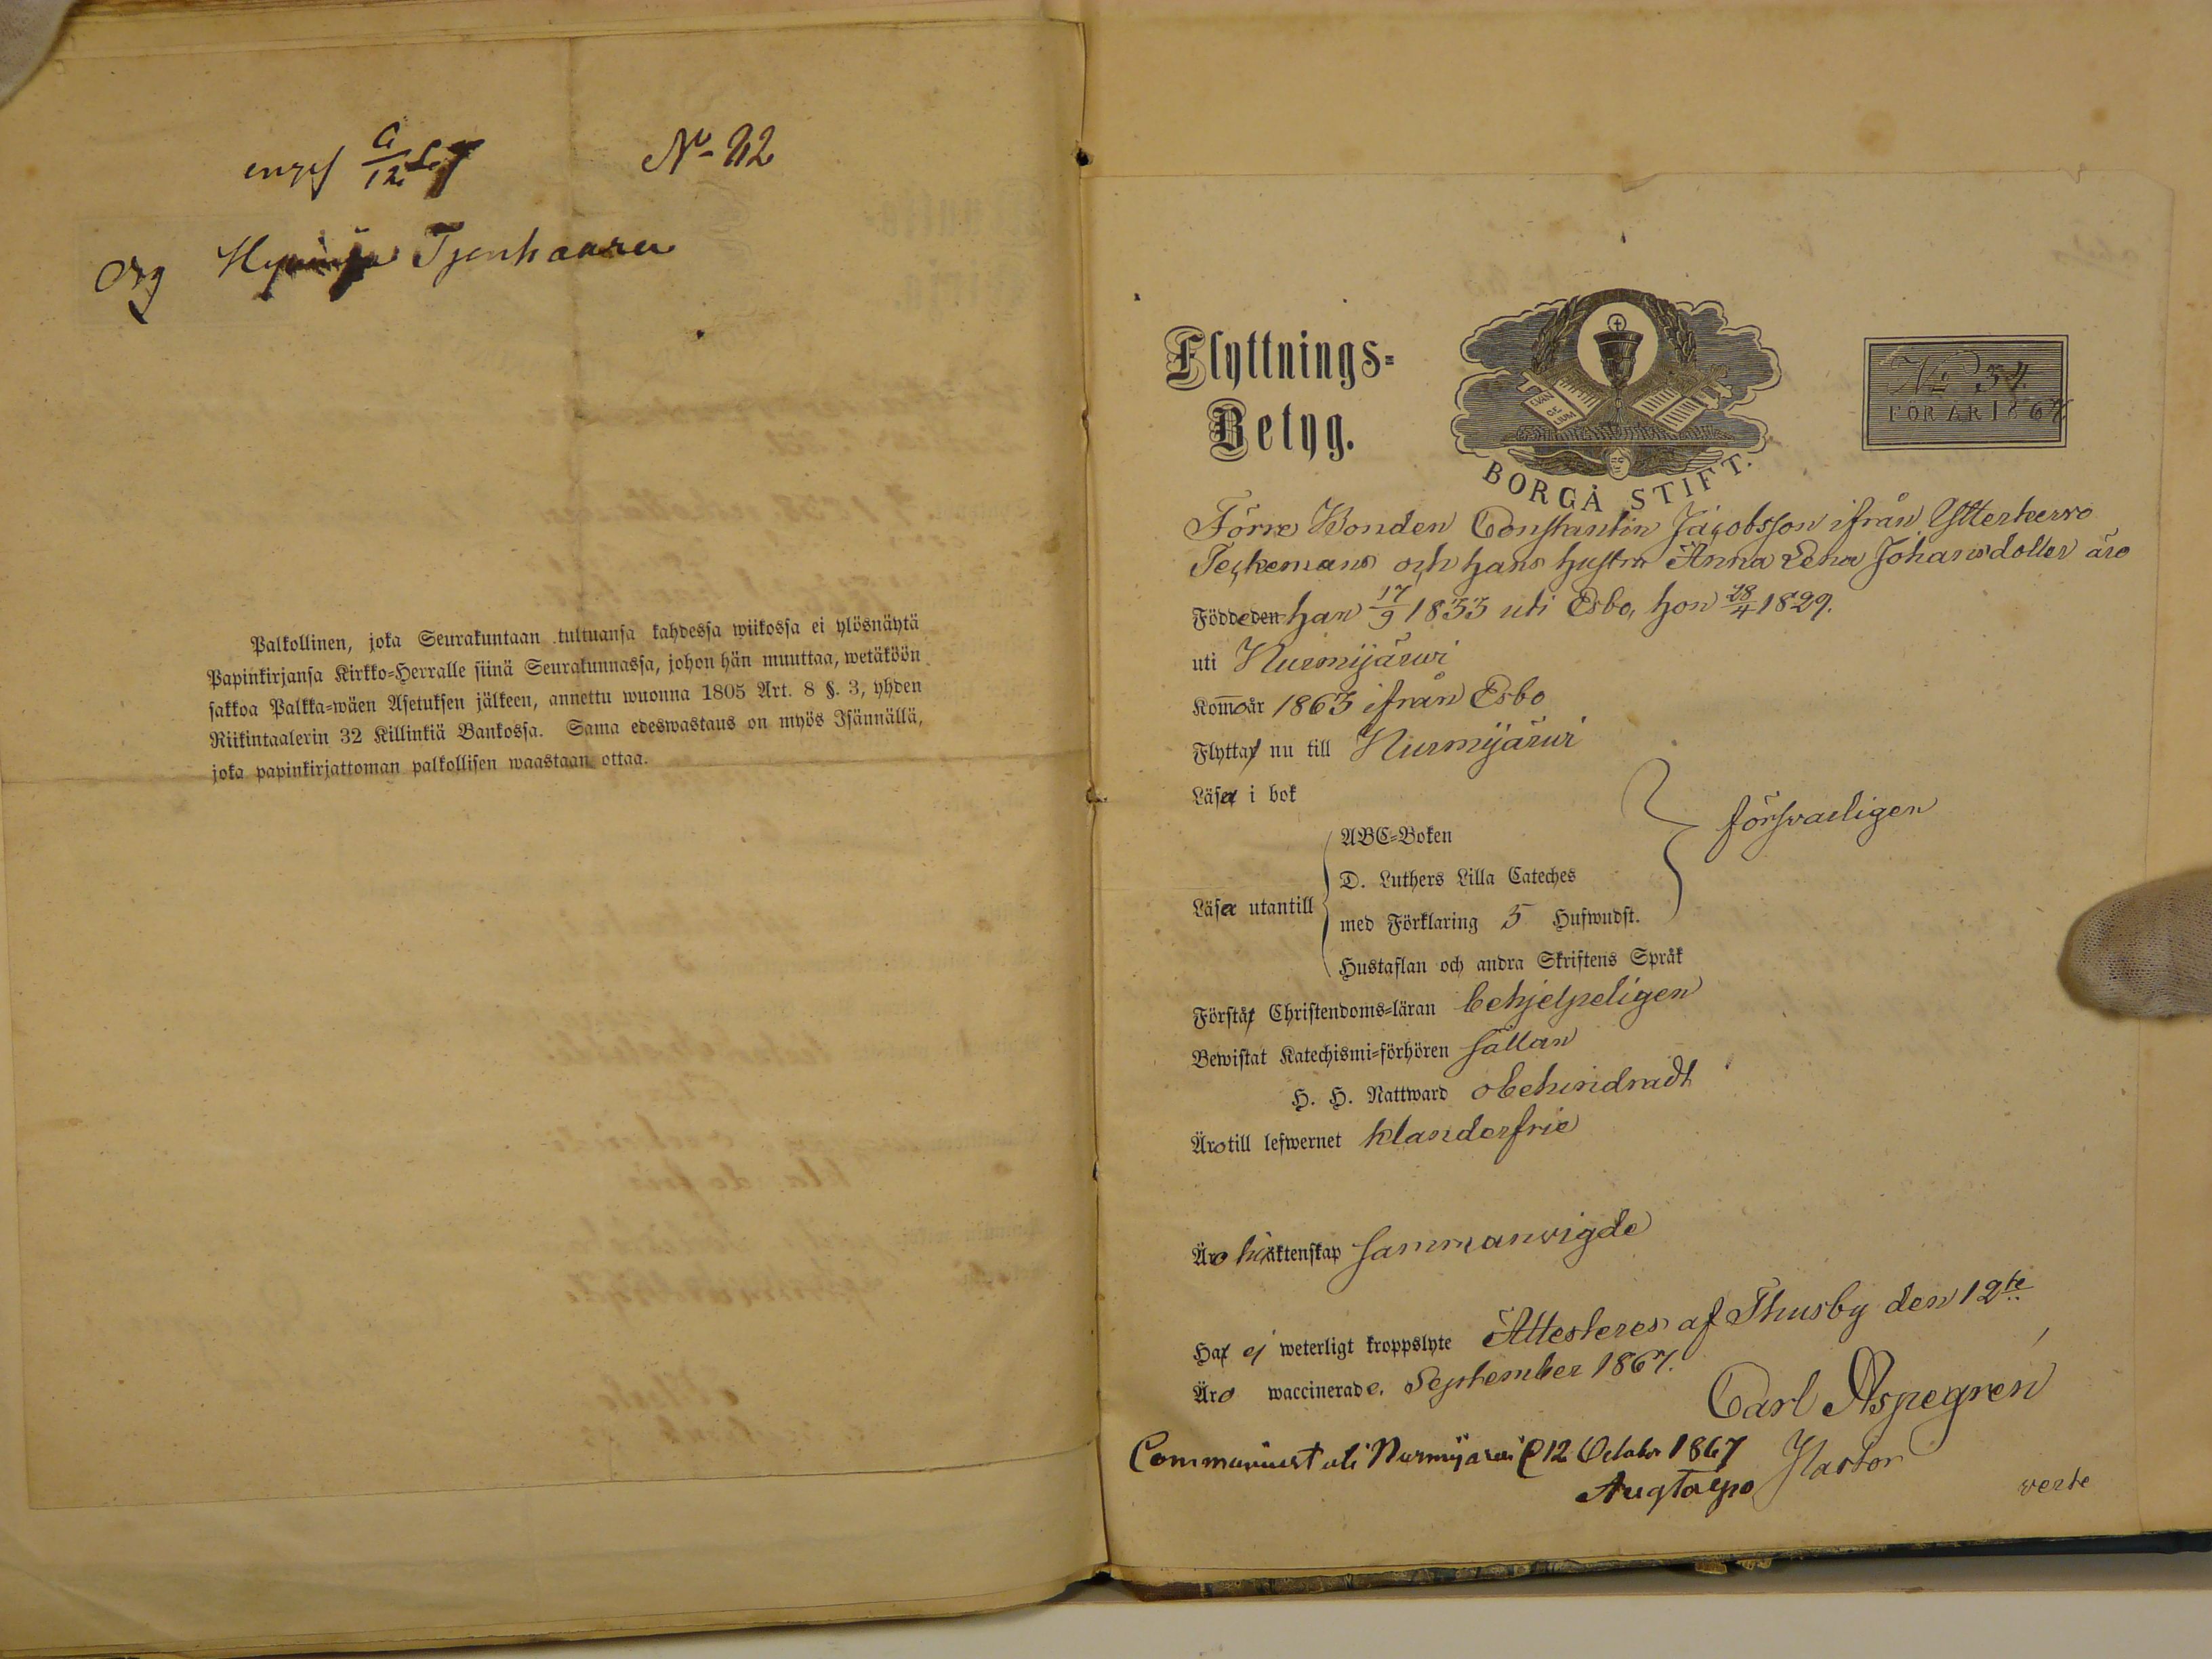 N° 112
Palkollinen, joka Seurakuntaan tultuansa kahdessa wiikossa ei ylösnäytä
Papinkirjansa Kirkko-Herralle siinä Seurakunnassa, johon hän muuttaa, wetäköön
sakkoa Palkka-wäen Asetuksen jälkeen, annettu wuonna 1805 Art. 8 §. 3, yhden
Riikintaalerin 32 Killinkiä Bankossa. Sama edeswastaus on myös Isännällä,
joka papinkirjattoman palkollisen waastaan ottaa.
Flyttnings-
Betyg.
EVANGELIUM
BORGÅ STIFT.
No 54.
FÖR ÅR 1867
Förre Bonden Constantin Jacobsson ifrån Ytterkervo
Teckemans och hans hustru Anna Lena Johansdotter äro
Födde den han 17/9 1833 uti Esbo, hon 28/4 1829.
uti Nurmijärvi
Kommo år 1863 ifrån Esbo
Flytta nu till Nurmijärvi
Läsa i bok
ABC-Boken
försvarligen
D. Luthers Lilla Cateches
Läsa utantill
med Förklaring 5 Hufwudst.
Hustaflan och andra Skriftens Språk
Förstå Christendoms-läran behjelpeligen
Bewistat Katechismi-förhören sällan
H. H. Nattward obehindradt
Äro till lefwernet klanderfrie
Äro i äktenskap sammanvigde
Ha ej weterligt kroppslyte Attesteres af Thusby den 12te
Äro waccinerade. September 1867.
Carl Aspegren
Pastor
Communicerat uti Nurmijärvi d 12 October 1867
verte